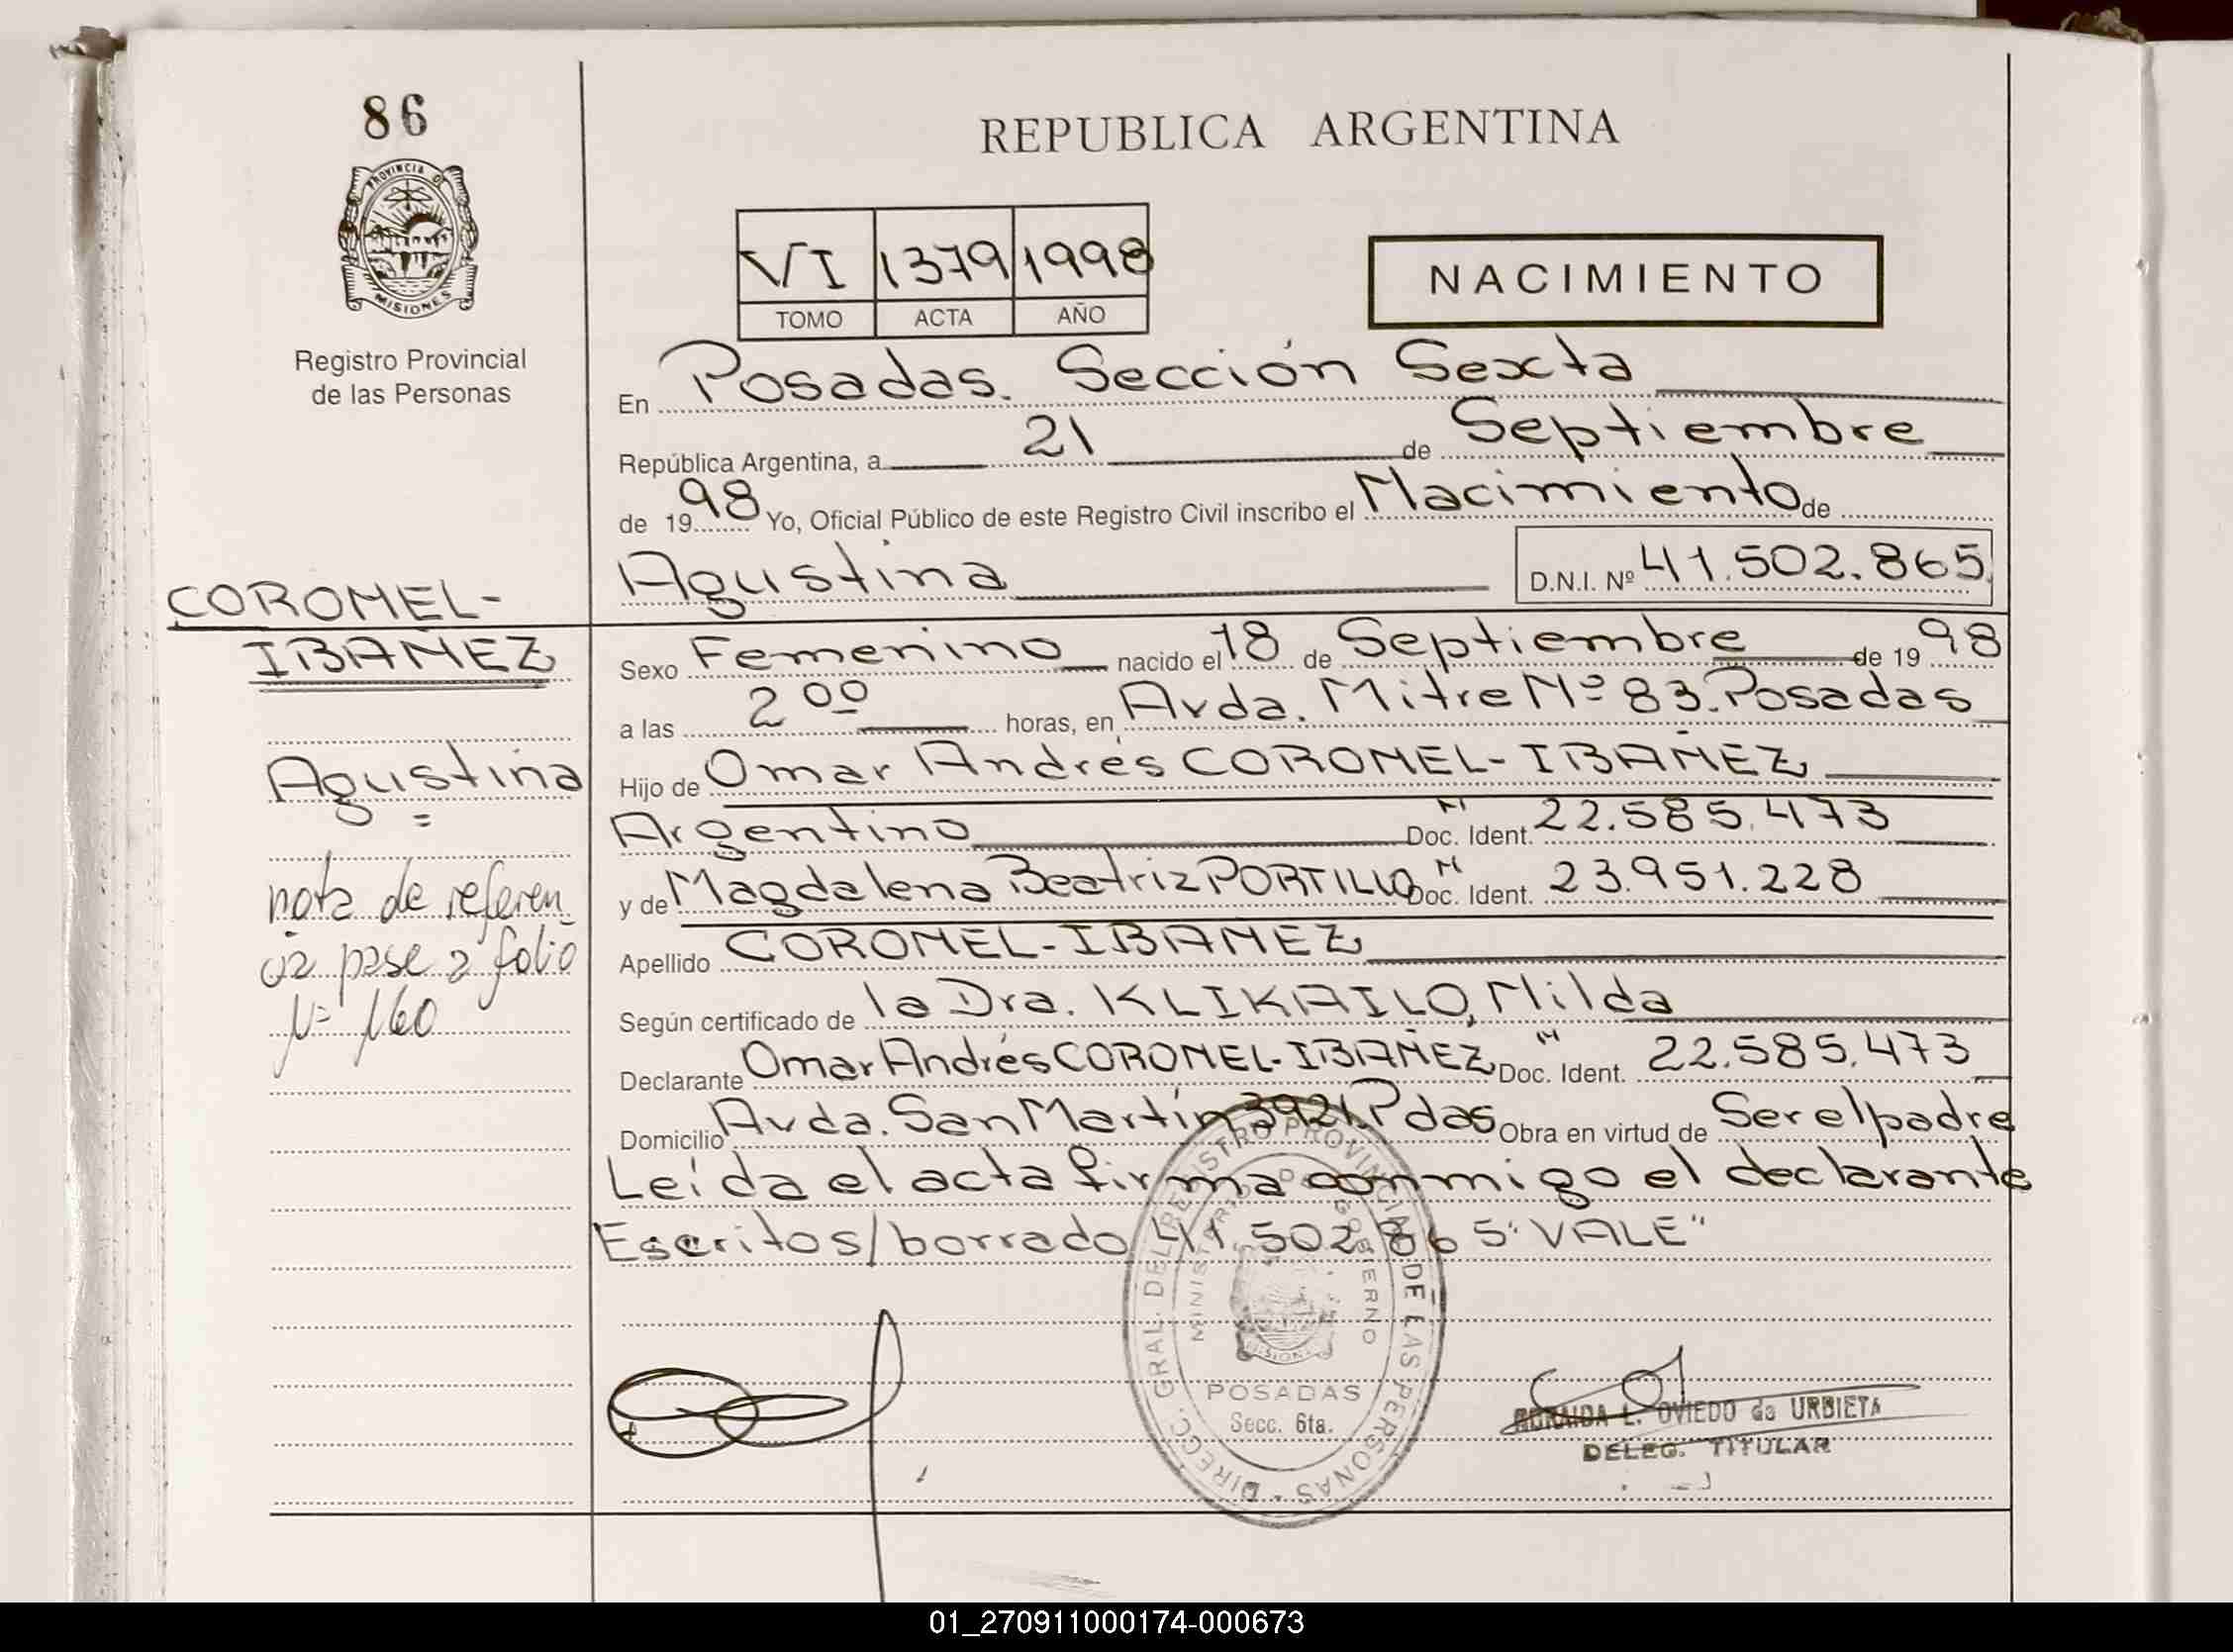 86
PROVINCIA DE
MISIONES
Registro Provincial
de las Personas
REPUBLICA ARGENTINA
VI 1379 1998
TOMO ACTA AÑO
NACIMIENTO
En Posadas. Sección Sexta
República Argentina, a 21 de Septiembre
de 1998 Yo, Oficial Público de este Registro Civil inscribo el Nacimiento de
Agustina D.N.I. Nº 41.502.865
CORONEL-
IBAÑEZ
Agustina
nota de referen
cia pase a folio
Nº 160
Sexo Femenino nacido el 18 de Septiembre de 1998
a las 2 00 horas, en Avda. Mitre Nº 83. Posadas
Hijo de Omar Andrés CORONEL-IBAÑEZ
Argentino Doc. Ident. Nº 22.585.473
y de Magdalena Beatriz PORTILLO Doc. Ident. Nº 23.951.228
Apellido CORONEL-IBAÑEZ
Según certificado de la Dra. KLIKAILO, Nilda
Declarante Omar Andrés CORONEL-IBAÑEZ Doc. Ident. Nº 22.585.473
Domicilio Avda. San Martín 3921. Pdas Obra en virtud de Ser el padre
Leída el acta firma conmigo el declarante
Escritos/borrado 41.502.865 "VALE"
DIRECC. GRAL. DEL REGISTRO PROVINCIAL DE LAS PERSONAS
MINISTERIO DE GOBIERNO
MISIONES
POSADAS
Secc. 6ta.
L. OVIEDO de URBIETA
DELEG. TITULAR
01_270911000174-000673